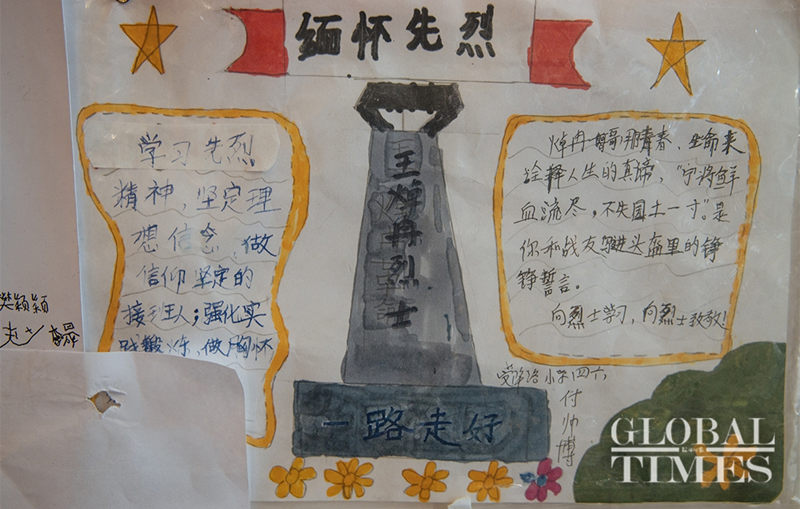 缅怀先烈
学习先烈
精神,坚定理
想信念,做
信仰坚定的
接班人;强化实
践锻炼,做胸怀
王焯冉烈士
一路走好
焯冉哥哥用青春、生命来
诠释人生的真谛,“宁将鲜
血流尽,不失国土一寸”。是
你和战友写进头盔里的铮
铮誓言。
向烈士学习,向烈士致敬!
小学四六
付帅博
樊颖颖
GLOBAL
TIMES